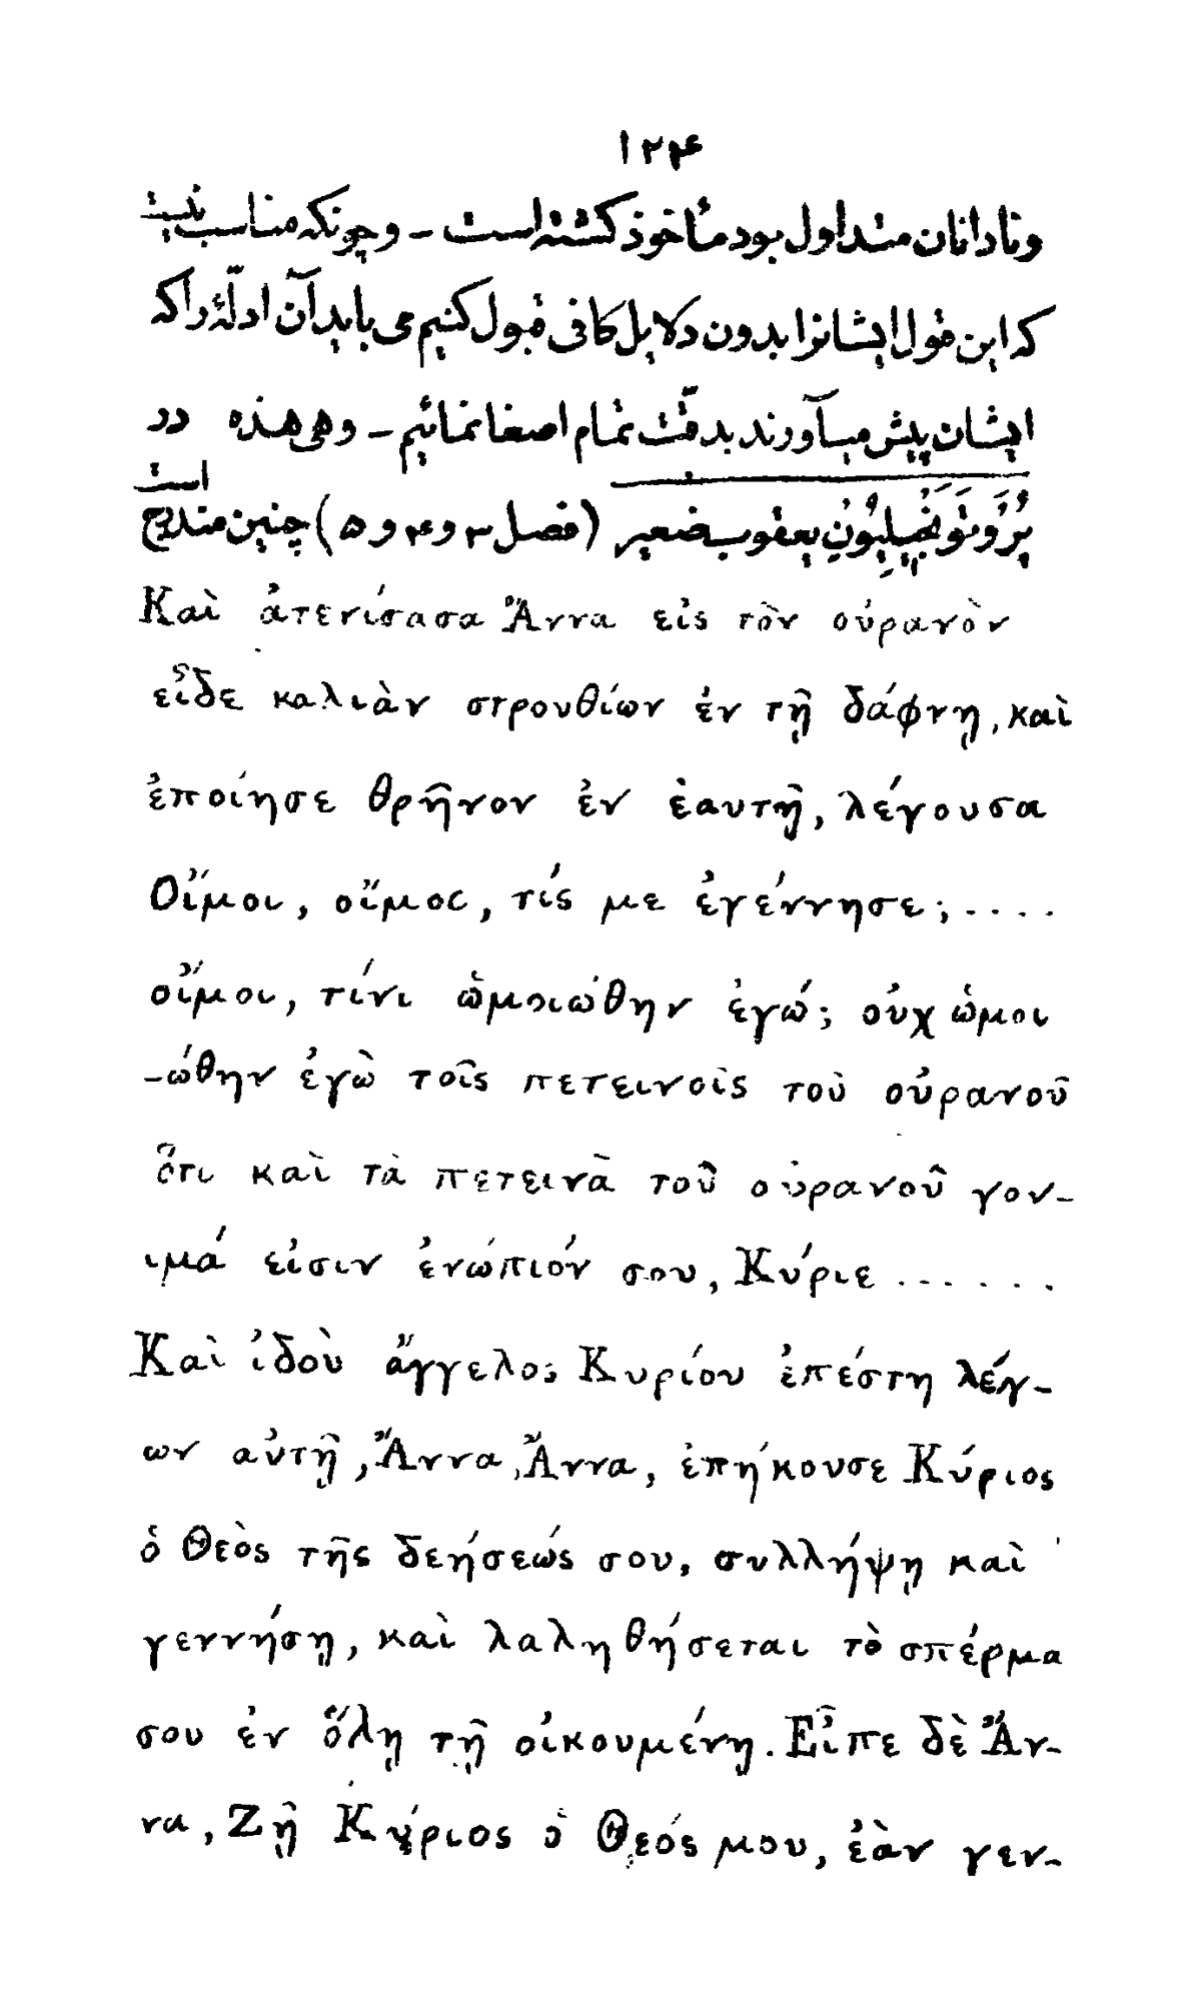 ۱۲۴
ونادانان متداول بود مأخوذ کشته است - و چونکه مناسب نیست
که این قول ایشانرا بدون دلایل کافی قبول کنیم می باید آن ادلّهٔ را که
ایشان پیش میآورند بدقّت تمام اصغا نمائیم - و هی هذه در
پْرُوتَوَنْجِیلِیُونِ یعقوب صغیر (فصل ۳ و ۴ و ۵) چنین مندرج است
Καὶ ἀτενίσασα Ἄννα εἰς τὸν οὐρανὸν
εἶδε καλιὰν στρουθίων ἐν τῇ δάφνῃ, καὶ
ἐποίησε θρῆνον ἐν ἑαυτῇ, λέγουσα
Οἴμοι, οἴμοι, τίς με ἐγέννησε; ....
οἴμοι, τίνι ὡμοιώθην ἐγώ; οὐχ ὡμοι
-ώθην ἐγὼ τοῖς πετεινοῖς τοῦ οὐρανοῦ
ὅτι καὶ τὰ πετεινὰ τοῦ οὐρανοῦ γον-
ιμά εἰσιν ἐνώπιόν σου, Κύριε ......
Καὶ ἰδοὺ ἄγγελος Κυρίου ἐπέστη λέγ-
ων αὐτῇ, Ἄννα, Ἄννα, ἐπήκουσε Κύριος
ὁ Θεὸς τῆς δεήσεώς σου, συλλήψῃ καὶ
γεννήσῃ, καὶ λαληθήσεται τὸ σπέρμα
σου ἐν ὅλῃ τῇ οἰκουμένῃ. Εἶπε δὲ Ἄν-
να, Ζῇ Κύριος ὁ Θεός μου, ἐὰν γεν-